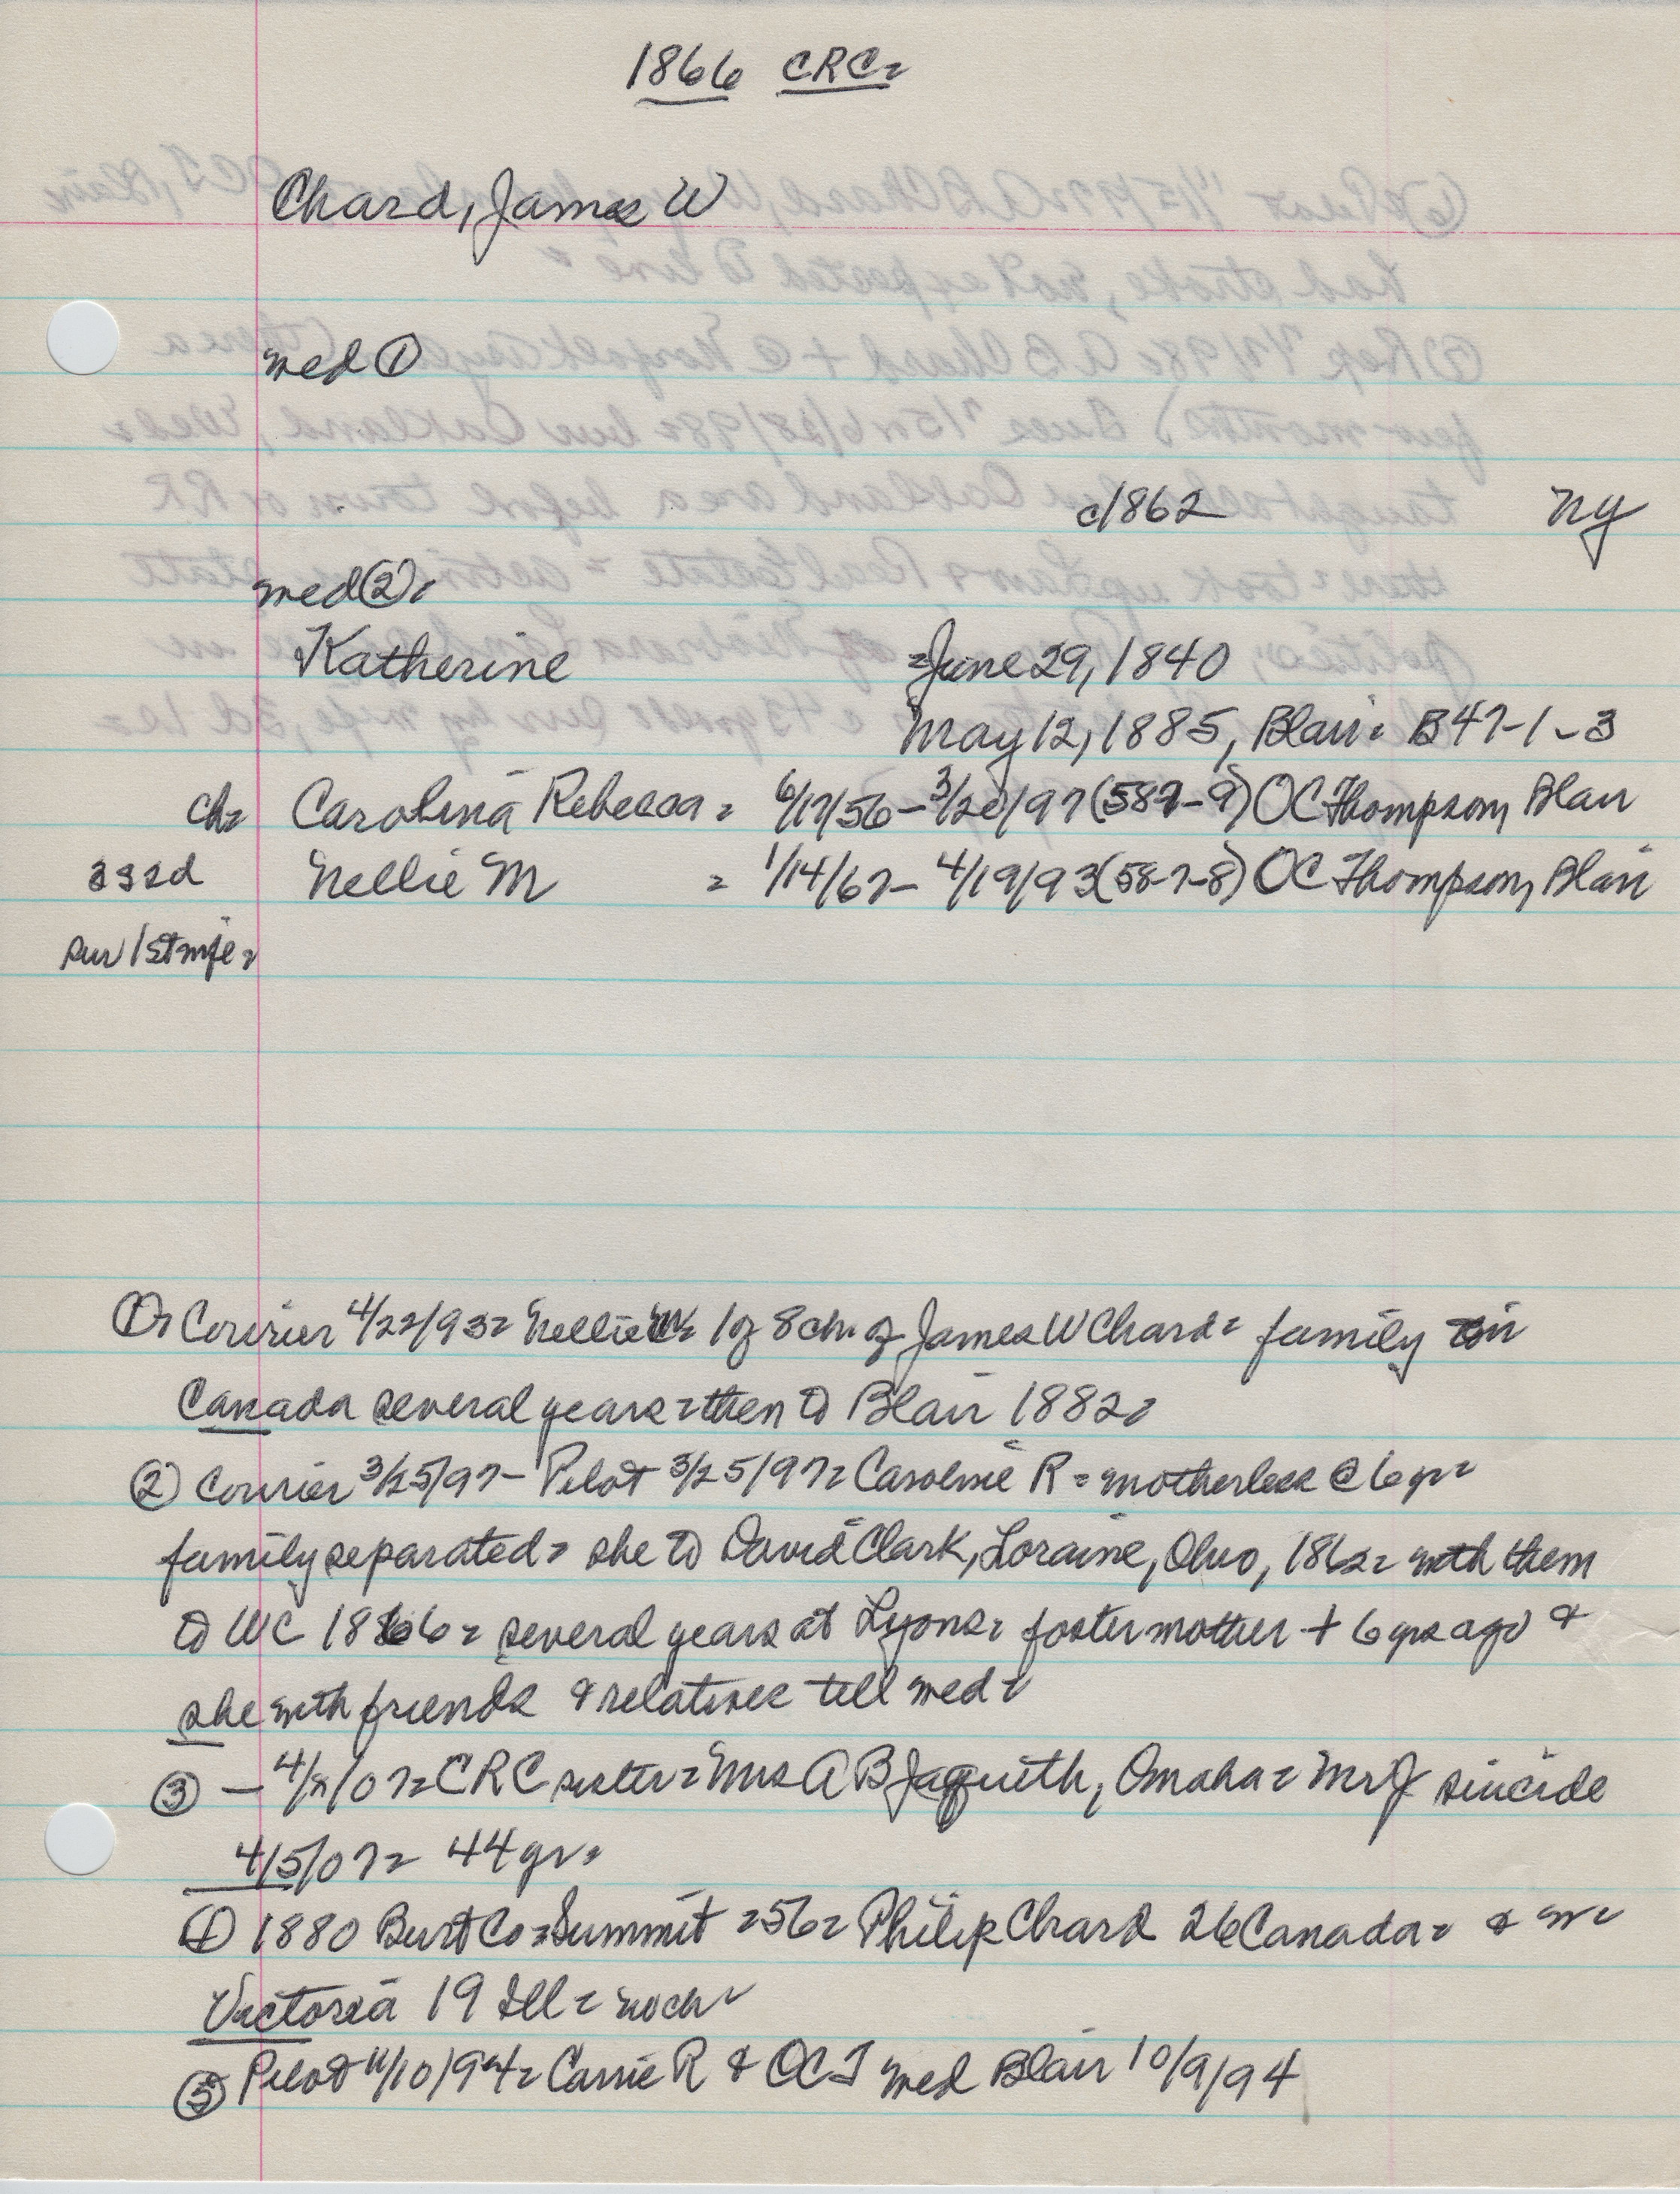 1866 CRC=
Chard, James W
med ①
c/1862 NY
med ②=
Katherine =June 29, 1840
May 12, 1885, Blair= B47-1-3
ch= Carolina Rebecca = 6/17/56-3/20/97 (587-9) OC Thompson, Blair
Nellie M = 1/14/67- 4/19/93 (587-8) OC Thompson, Blair
sur 1st wife=
①= Courier 4/22/93= Nellie M= 1 of 8 ch. of James W Chard= family in
Canada several years=then to Blair 1882=
② Courier 3/25/97- Pilot 3/25/97= Caroline R= motherless @ 6 yr=
family separated= she to David Clark, Loraine, Ohio, 1862= with them
to WC 1866= several years at Lyons= foster mother + 6 yrs ago &
she with friends & relatives till med=
③ - 4/ /07= CRC sister= Mrs A B Jaquith, Omaha= Mr J suicide
4/5/07= 44 yr=
④ 1880 Burt Co=Summit =56= Philip Chard 26 Canada= & w=
Victoria 19 Ill= no ch=
⑤ Pilot 11/10/94= Carrie R & OCT med Blair 10/9/94